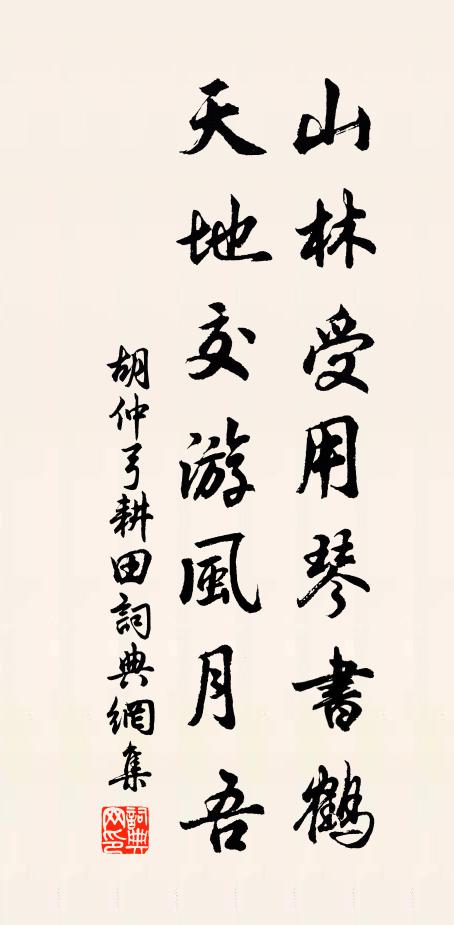 山林受用琴書鶴
天地交游風月吾
胡仲弓耕田詞典網集
詞典網印